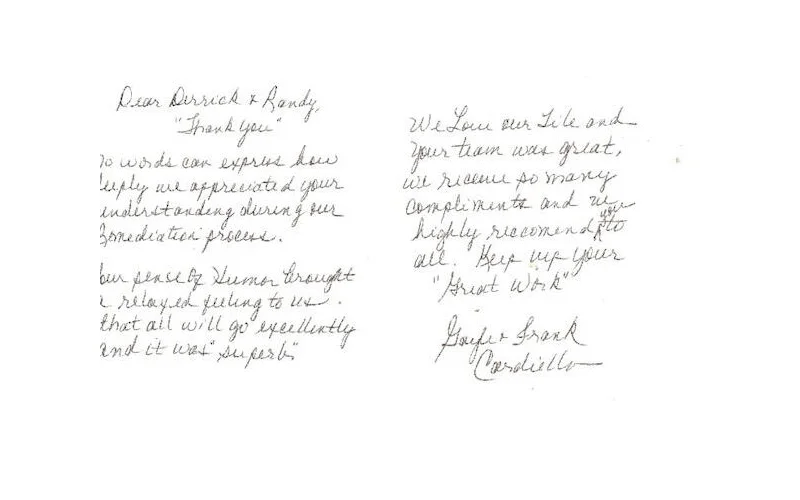 Dear Derrick & Randy,
"Thank you"
o words can express how
eeply we appreciated your
understanding during our
remediation process.
our sense of Humor brought
a relaxed feeling to us.
that all will go excellently
and it was "superb"
We Love our Tile and
Your team was great,
we receive so many
compliments and we
highly reccomend you to
all. Keep up your
"Great Work"
& Frank
Cardiello